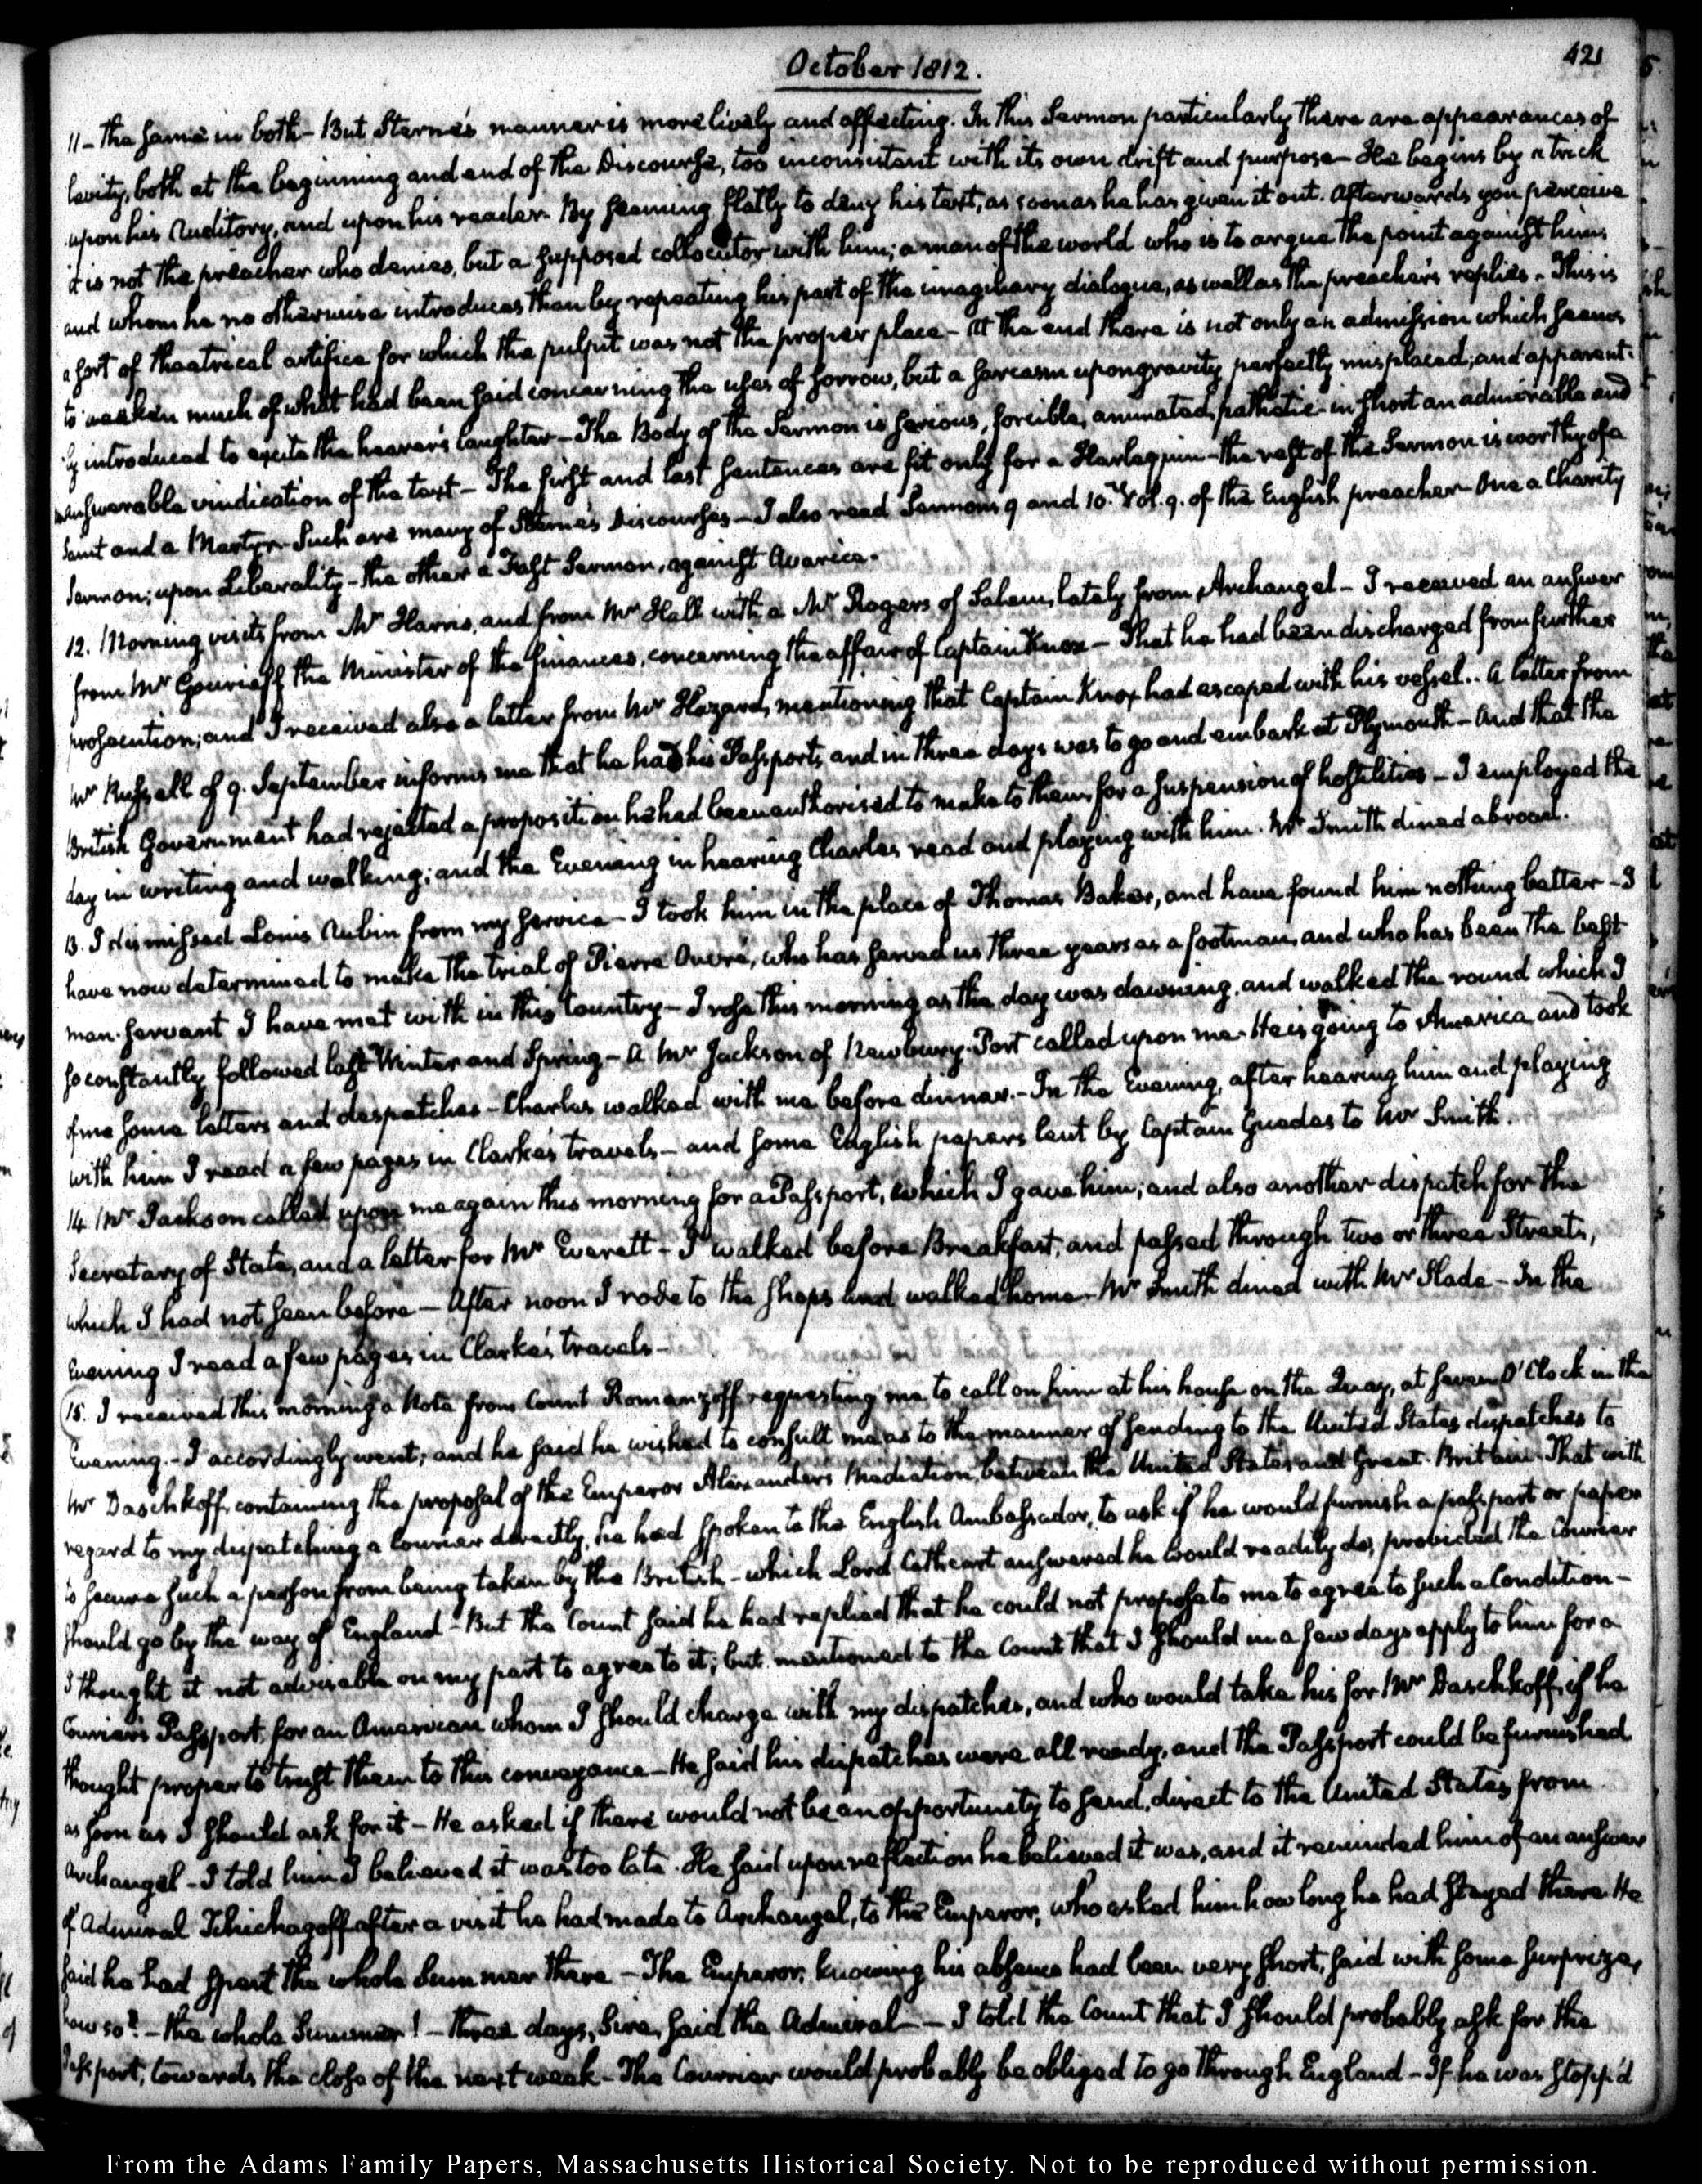 October 1812.
421
11 - the same in both - But Sterne's manner is more lively and affecting. In this Sermon particularly there are appearances of
levity, both at the beginning and end of the Discourse, too inconsistent with its own drift and purpose - He begins by a trick
upon his Auditory, and upon his reader. By seeming flatly to deny his text, as soon as he has given it out. Afterwards you perceive
it is not the preacher who denies, but a supposed collocutor with him; a man of the world who is to argue the point against him;
and whom he no otherwise introduces than by repeating his part of the imaginary dialogue, as well as the preacher's replies. - This is
a sort of theatrical artifice for which the pulpit was not the proper place - At the end there is not only an admission which seems
to weaken much of what had been said concerning the uses of sorrow, but a sarcasm upon gravity perfectly misplaced; and apparent-
ly introduced to excite the hearer's laughter - The Body of the Sermon is serious, forcible, animated, pathetic - in short an admirable and
unanswerable vindication of the text - The first and last sentences are fit only for a Harlequin - the rest of the Sermon is worthy of a
Saint and a Martyr. Such are many of Sterne's Discourses - I also read Sermons 9 and 10. Vol. 9. of the English preacher - One a Charity
Sermon; upon Liberality - the other a Fast Sermon, against Avarice -
12. Morning visits from Mr Harris, and from Mr Hall with a Mr Rogers of Salem, lately from Archangel - I received an answer
from Mr Gourieff the Minister of the finances, concerning the affair of Captain Knox - That he had been discharged from further
prosecution; and I received also a letter from Mr Hazard, mentioning that Captain Knox had escaped with his vessel.. A letter from
Mr Russell of 9. September informs me that he had his Passports, and in three days was to go and embark at Plymouth - And that the
British Government had rejected a proposition he had been authorised to make to them, for a suspension of hostilities - I employed the
day in writing and walking; and the Evening in hearing Charles read and playing with him. Mr Smith dined abroad.
13. I dismissed Louis Aubin from my service - I took him in the place of Thomas Baker, and have found him nothing better - I
have now determined to make the trial of Pierre Oueré, who has served us three years as a footman, and who has been the best
man-servant I have met with in this Country - I rose this morning as the day was dawning, and walked the round which I
so constantly followed last Winter and Spring - A Mr Jackson of Newbury-Port called upon me. He is going to America and took
of me some letters and despatches - Charles walked with me before dinner. - In the Evening, after hearing him and playing
with him I read a few pages in Clarke's travels - and some English papers lent by Captain Guedes to Mr Smith.
14. Mr Jackson called upon me again this morning for a Passport, which I gave him; and also another dispatch for the
Secretary of State, and a letter for Mr Everett - I walked before Breakfast, and passed through two or three Streets,
which I had not seen before - After noon I rode to the shops and walked home - Mr Smith dined with Mr Slade - In the
Evening I read a few pages in Clarke's travels -
15. I received this morning a Note from Count Romanzoff requesting me to call on him at his house on the Quay, at seven O'Clock in the
Evening. - I accordingly went; and he said he wished to consult me as to the manner of sending to the United States dispatches to
Mr Daschkoff, containing the proposal of the Emperor Alexander's Mediation, between the United States and Great-Britain. That with
regard to my dispatching a Courier directly, he had spoken to the English Ambassador, to ask if he would furnish a passport or paper
to secure such a person from being taken by the British - which Lord Cathcart answered he would readily do, provided the Courier
should go by the way of England - But the Count said he had replied that he could not propose to me to agree to such a Condition -
I thought it not advisable on my part to agree to it; but mentioned to the Count that I should in a few days apply to him for a
Courier's Passport, for an American whom I should charge with my dispatches, and who would take his for Mr Daschkoff, if he
thought proper to trust them to this conveyance - He said his dispatches were all ready, and the Passport could be furnished
as soon as I should ask for it - He asked if there would not be an opportunity to send, direct to the United States from
Archangel - I told him I believed it was too late. He said upon reflection he believed it was, and it reminded him of an answer
of Admiral Tchichagoff after a visit he had made to Archangel, to the Emperor, who asked him how long he had stayed there. He
said he had spent the whole Summer there - The Emperor, knowing his absence had been very short, said with some surprize,
how so? - the whole Summer! - three days, Sire, said the Admiral - - I told the Count that I should probably ask for the
Passport, towards the close of the next week - The Courrier would probably be obliged to go through England - If he was stopp'd
From the Adams Family Papers, Massachusetts Historical Society. Not to be reproduced without permission.